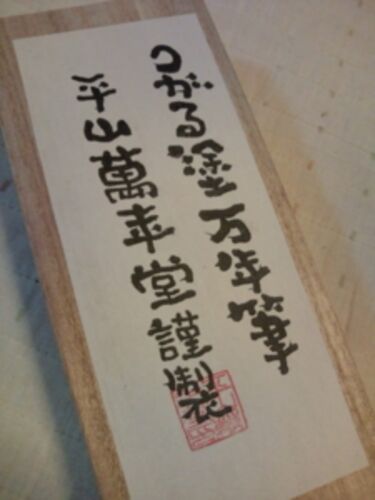 つがる塗万年筆
平山萬年堂謹製